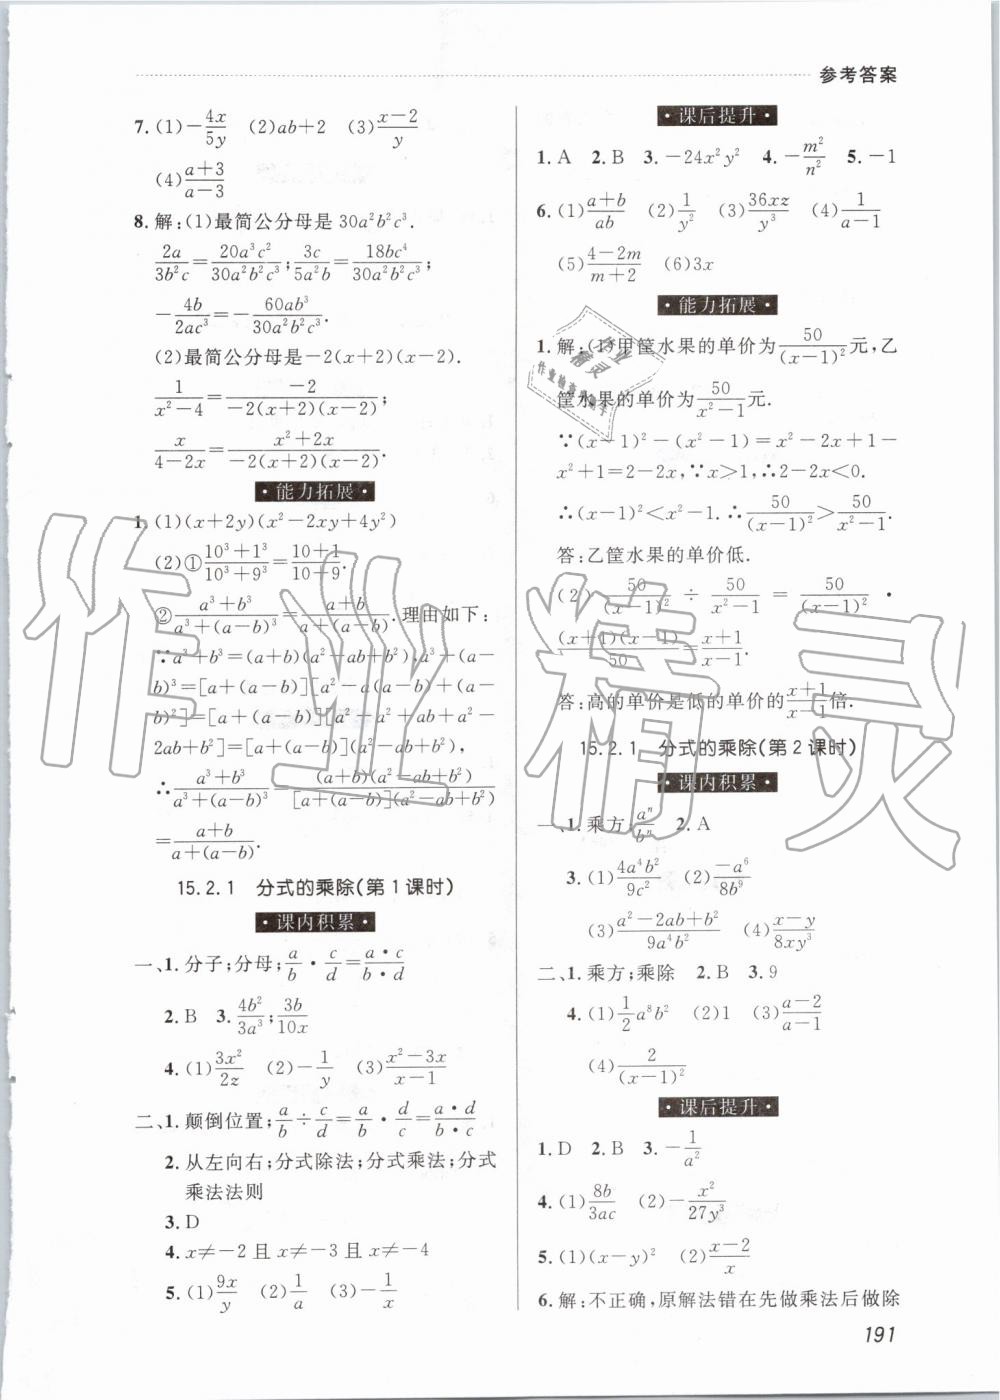 参考答案
7. (1)-4x/5y (2)ab+2 (3)(x-2)/y
(4)(a+3)/(a-3)
8. 解:(1)最简公分母是30a²b²c³.
2a/3b²c=20a³c²/30a²b²c³;3c/5a²b=18bc⁴/30a²b²c³;
-4b/2ac³=-60ab³/30a²b²c³.
(2)最简公分母是-2(x+2)(x-2).
1/(x²-4)=-2/(-2(x+2)(x-2));
x/(4-2x)=(x²+2x)/(-2(x+2)(x-2)).
·能力拓展·
1. (1)(x+2y)(x²-2xy+4y²)
(2)①(10³+1³)/(10³+9³)=(10+1)/(10+9).
②(a³+b³)/(a³+(a-b)³)=(a+b)/(a+(a-b)).理由如下:
∵a³+b³=(a+b)(a²-ab+b²),a³+(a-
b)³=[a+(a-b)][a²-a(a-b)+(a-
b)²]=[a+(a-b)][a²-a²+ab+a²-
2ab+b²]=[a+(a-b)](a²-ab+b²),
∴(a³+b³)/(a³+(a-b)³)=(a+b)(a²-ab+b²)/([a+(a-b)](a²-ab+b²))
=(a+b)/(a+(a-b)).
15.2.1 分式的乘除(第1课时)
·课内积累·
一、1. 分子;分母;a/b·c/d=(a·c)/(b·d)
2. B 3. 4b²/3a³;3b/10x
4. (1)3x²/2z (2)-1/y (3)(x²-3x)/(x-1)
二、1. 颠倒位置;a/b÷c/d=a/b·d/c=(a·d)/(b·c)
2. 从左向右;分式除法;分式乘法;分式
乘法法则
3. D
4. x≠-2且x≠-3且x≠-4
5. (1)9x/y (2)1/a (3)-1/x
·课后提升·
1. A 2. B 3. -24x²y² 4. -m²/n² 5. -1
6. (1)(a+b)/ab (2)1/y² (3)36xz/y³ (4)1/(a-1)
(5)(4-2m)/(m+2) (6)3x
·能力拓展·
1. 解:(1)甲筐水果的单价为50/(x-1)²元,乙
筐水果的单价为50/(x²-1)元.
∵(x-1)²-(x²-1)=x²-2x+1-
x²+1=2-2x,∵x>1,∴2-2x<0.
∴(x-1)²<x²-1.∴50/(x-1)²>50/(x²-1).
答:乙筐水果的单价低.
(2)50/(x-1)² ÷ 50/(x²-1) = 50/(x-1)² ·
(x+1)(x-1)/50=(x+1)/(x-1).
答:高的单价是低的单价的(x+1)/(x-1)倍.
15.2.1 分式的乘除(第2课时)
·课内积累·
一、1. 乘方 aⁿ/bⁿ 2. A
3. (1)4a⁴b²/9c² (2)-a⁶/8b⁹
(3)(a²-2ab+b²)/9a⁴b² (4)(x-y)/8xy³
二、1. 乘方;乘除 2. B 3. 9
4. (1)1/2a⁸b² (2)1 (3)(a-2)/(a-1)
(4)2/(x-1)²
·课后提升·
1. D 2. B 3. -1/a²
4. (1)8b/3ac (2)-x²/27y³
5. (1)(x-y)² (2)(x-2)/x
6. 解:不正确,原解法错在先做乘法后做除
191
作业精灵